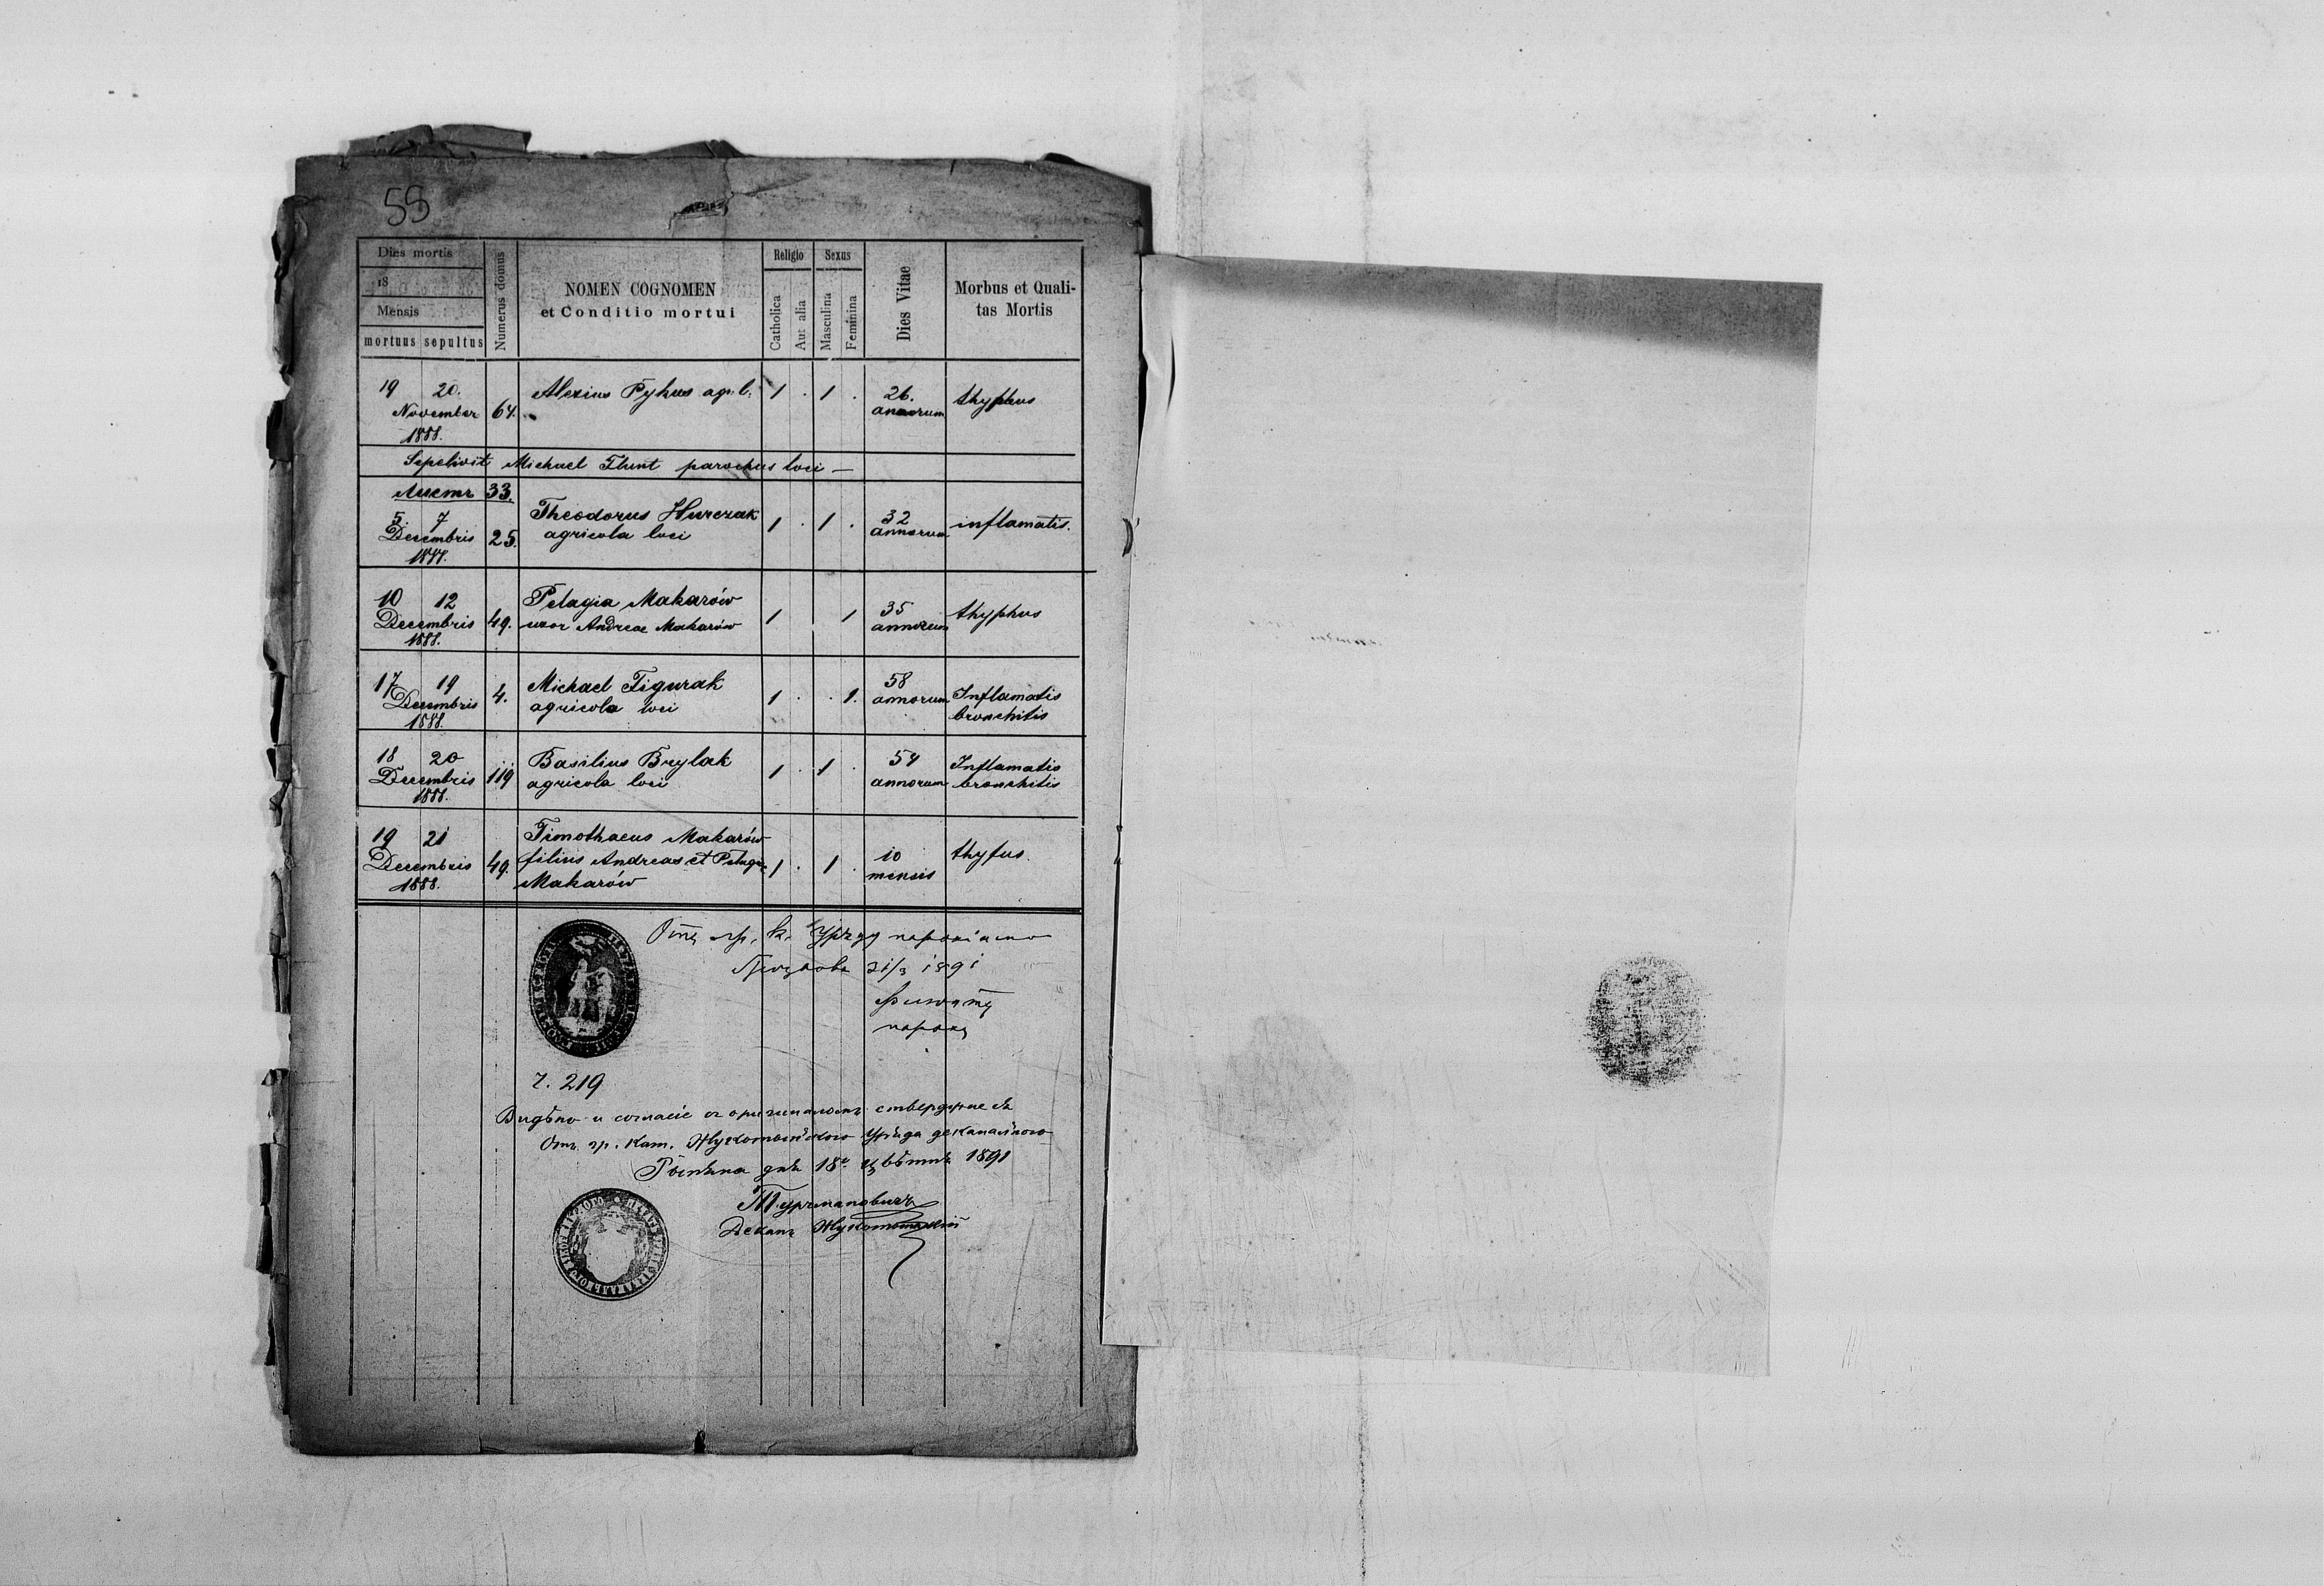 55
Dies mortis
18
Mensis
mortuus sepultus
Numerus domus
NOMEN COGNOMEN
et Conditio mortui
Religio
Catholica
Aut alia
Sexus
Masculina
Feminina
Dies Vitae
Morbus et Quali-
tas Mortis
19 20. Alexius Pyhus agl. 1 . 1 . 26. thyphus
November 64. annorum
1888.
Sepelivit Michael Flunt parochus loci —
Листъ 33.
5. 7 Theodorus Hurczak 1 . 1 . 32 inflamatis.
Decembris 25. agricola loci annorum
1888.
10 12 Pelagia Makarów 1 1 35 thyphus
Decembris 49. uxor Andreae Makarów annorum
1888.
17 19 Michael Figurak 1 . . 1. 58 Inflamatis
Decembris 4. agricola loci annorum bronchitis
1888.
18 20 Basilius Brylak 1 . 1 . 54 Inflamatis
Decembris 119 agricola loci annorum bronchitis
1888.
19 21 Timothaeus Makarów
Decembris 49. filius Andreae et Pelagiae 1 . 1 . 10 thyfus.
1888. Makarów mensis
Отъ гр. к. Уряду
21/3 1891
парохъ
Ч. 219
Видѣно и согласіе съ оригиналомъ
Отъ гр. кат. Уряда деканального
дня 18. цвѣтня 1891
Деканъ